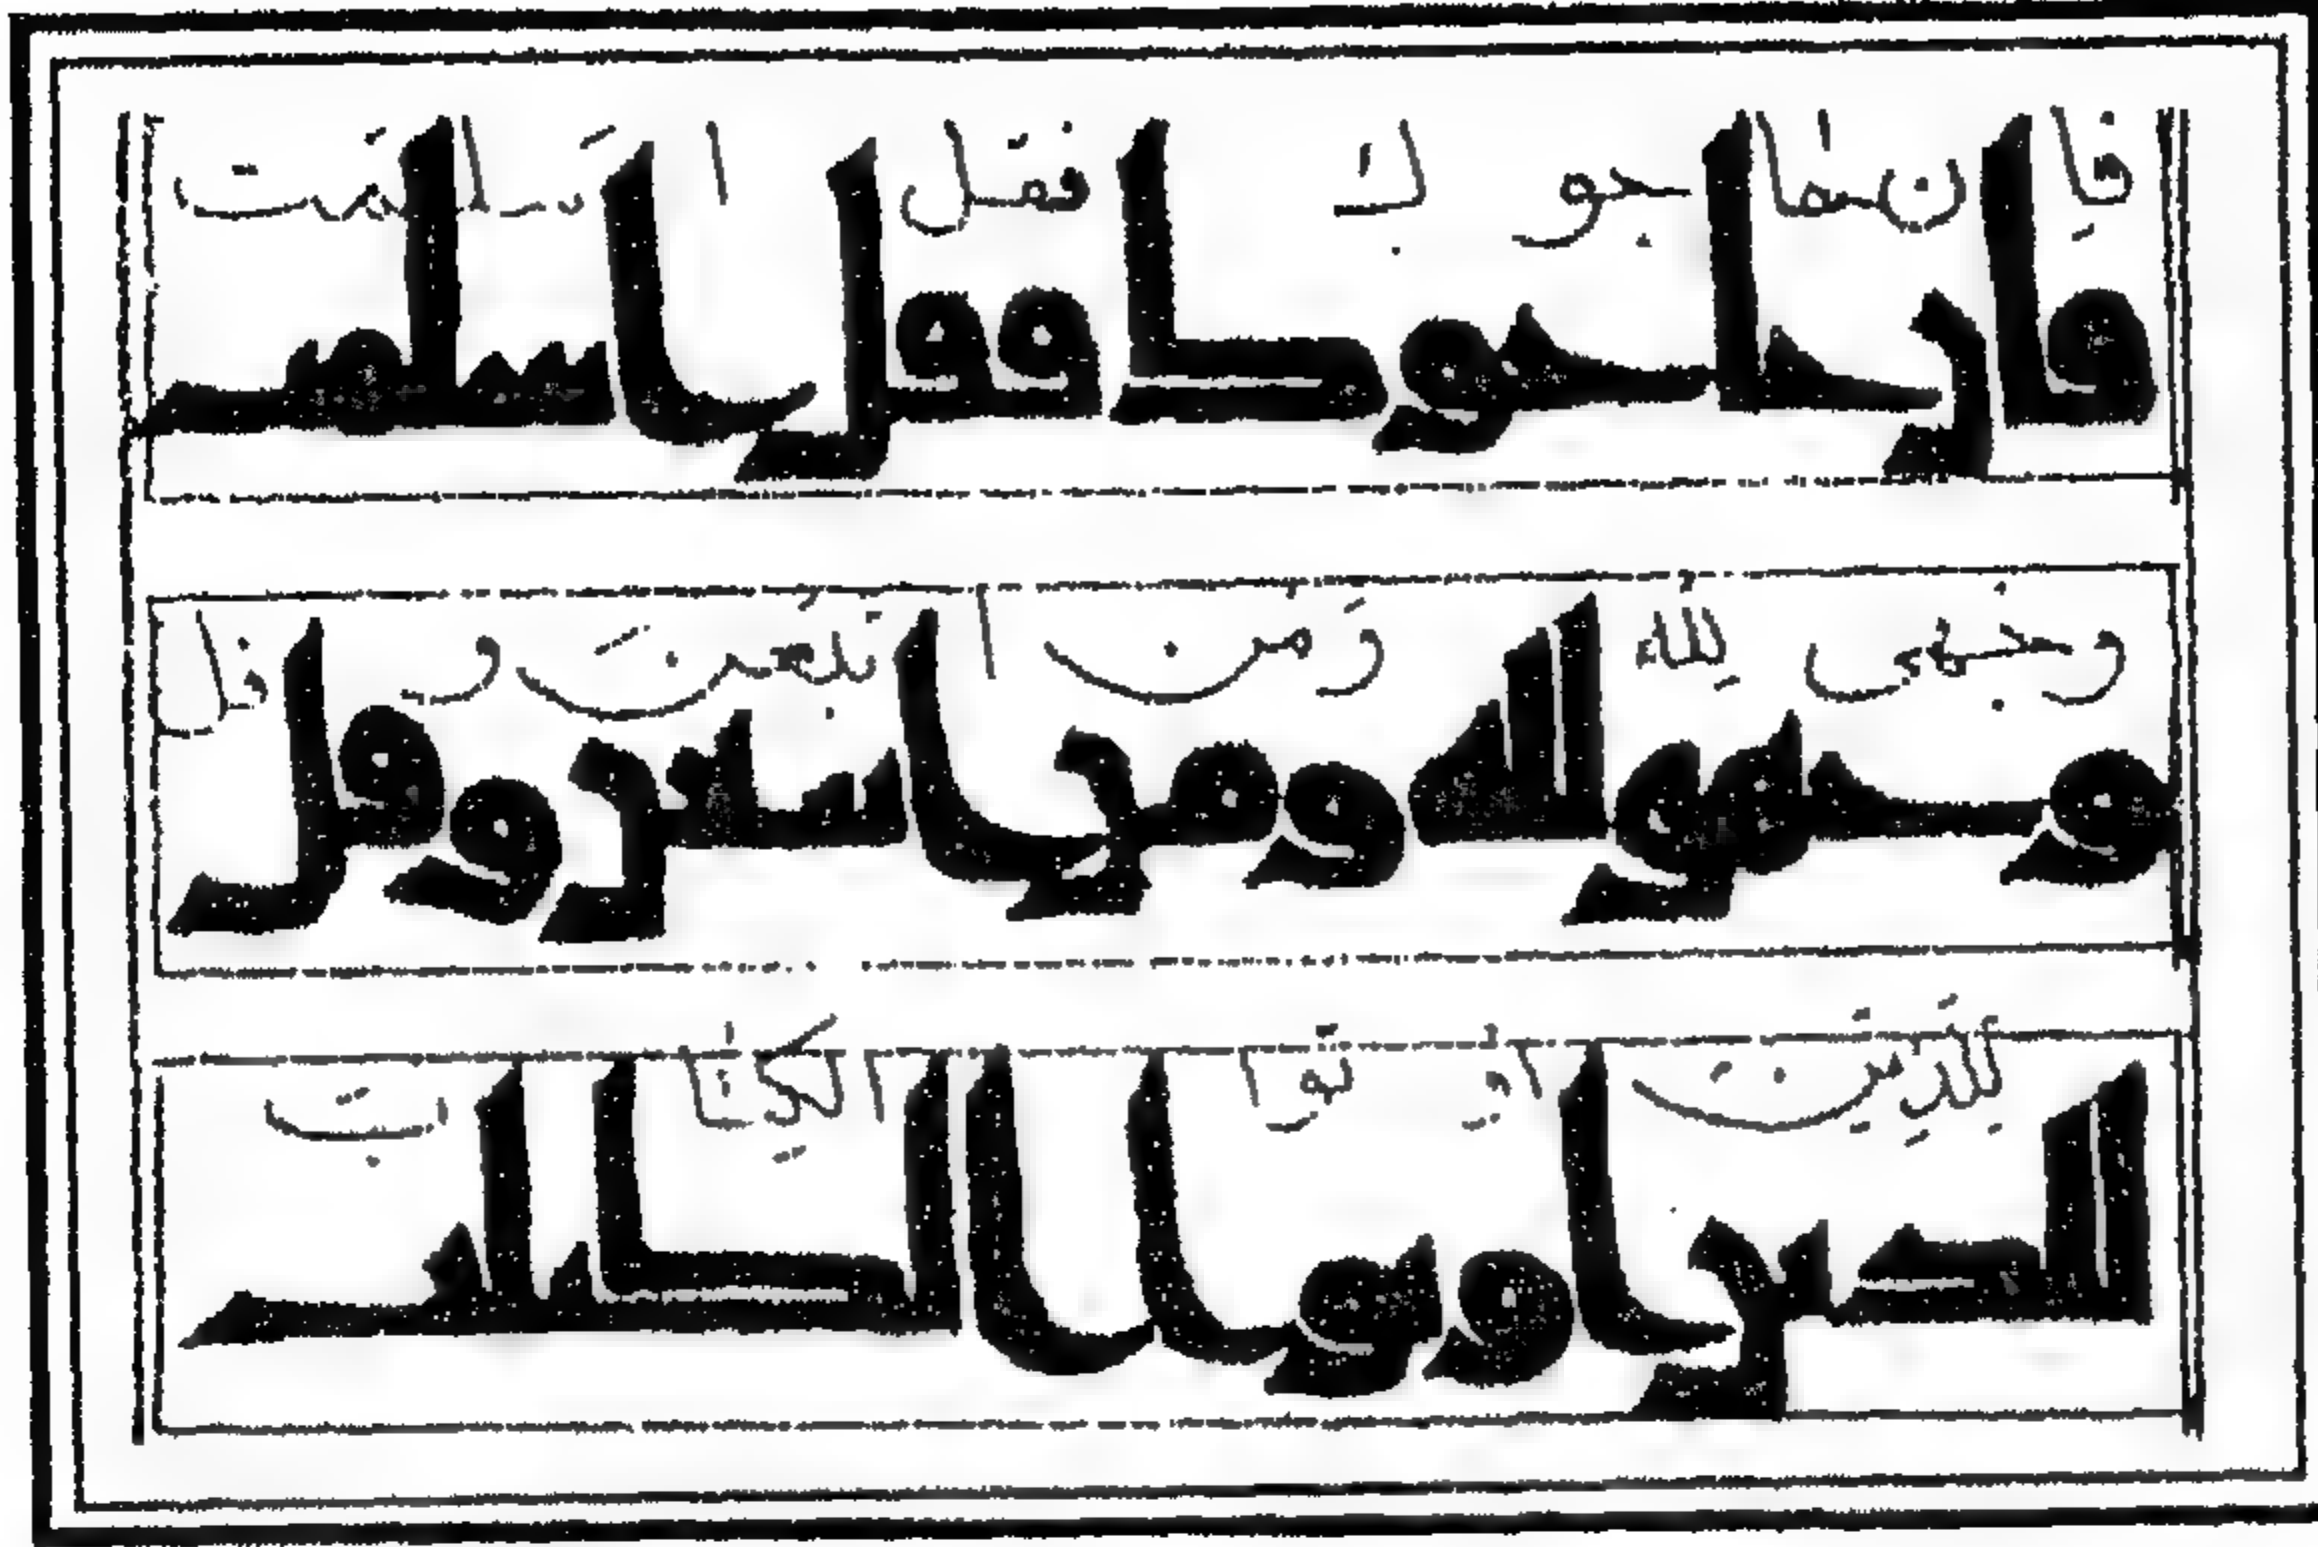 فإن حاجوك فقل اسلمت
فان حاجوك فقل اسلمت
وجهي لله ومن اتبعن وقل
وجهي لله ومن اتبعن وقل
للذين اوتوا الكتاب
للذين اوتوا الكتاب